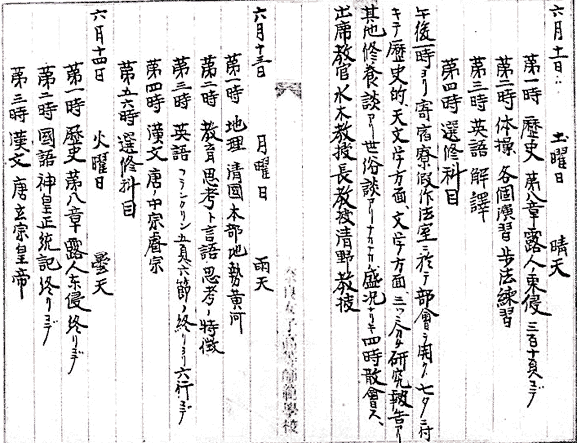 六月十一日 土曜日 晴天
第一時 歴史 第八章 露人ノ東侵 三百十頁マデ
第二時 体操 各個演習 歩法練習
第三時 英語 解譯
第四時 選修科目
午後一時ヨリ寄宿寮假作法室ニ於テ部會ヲ開ク 七夕ニ付
キテ歴史的、天文学方面、文学方面、三ツニ分チ研究報告アリ
其他修養談アリ世俗談アリナカナカ盛況ナリキ四時散會ス、
出席教官 水木教授 長教授 清野教授
奈良女子高等師範學校
六月十三日 月曜日 雨天
第一時 地理 清國本部地勢 黄河
第二時 教育 思考ト言語 思考ノ特徴
第三時 英語 フランクリン 五頁六節ノ終リヨリ六行マデ
第四時 漢文 唐ノ中宗 睿宗
第五六時 選修科目
六月十四日 火曜日 曇天
第一時 歴史 第八章 露人ノ東侵 終リマデ
第二時 國語 神皇正統記 終リマデ
第三時 漢文 唐玄宗皇帝